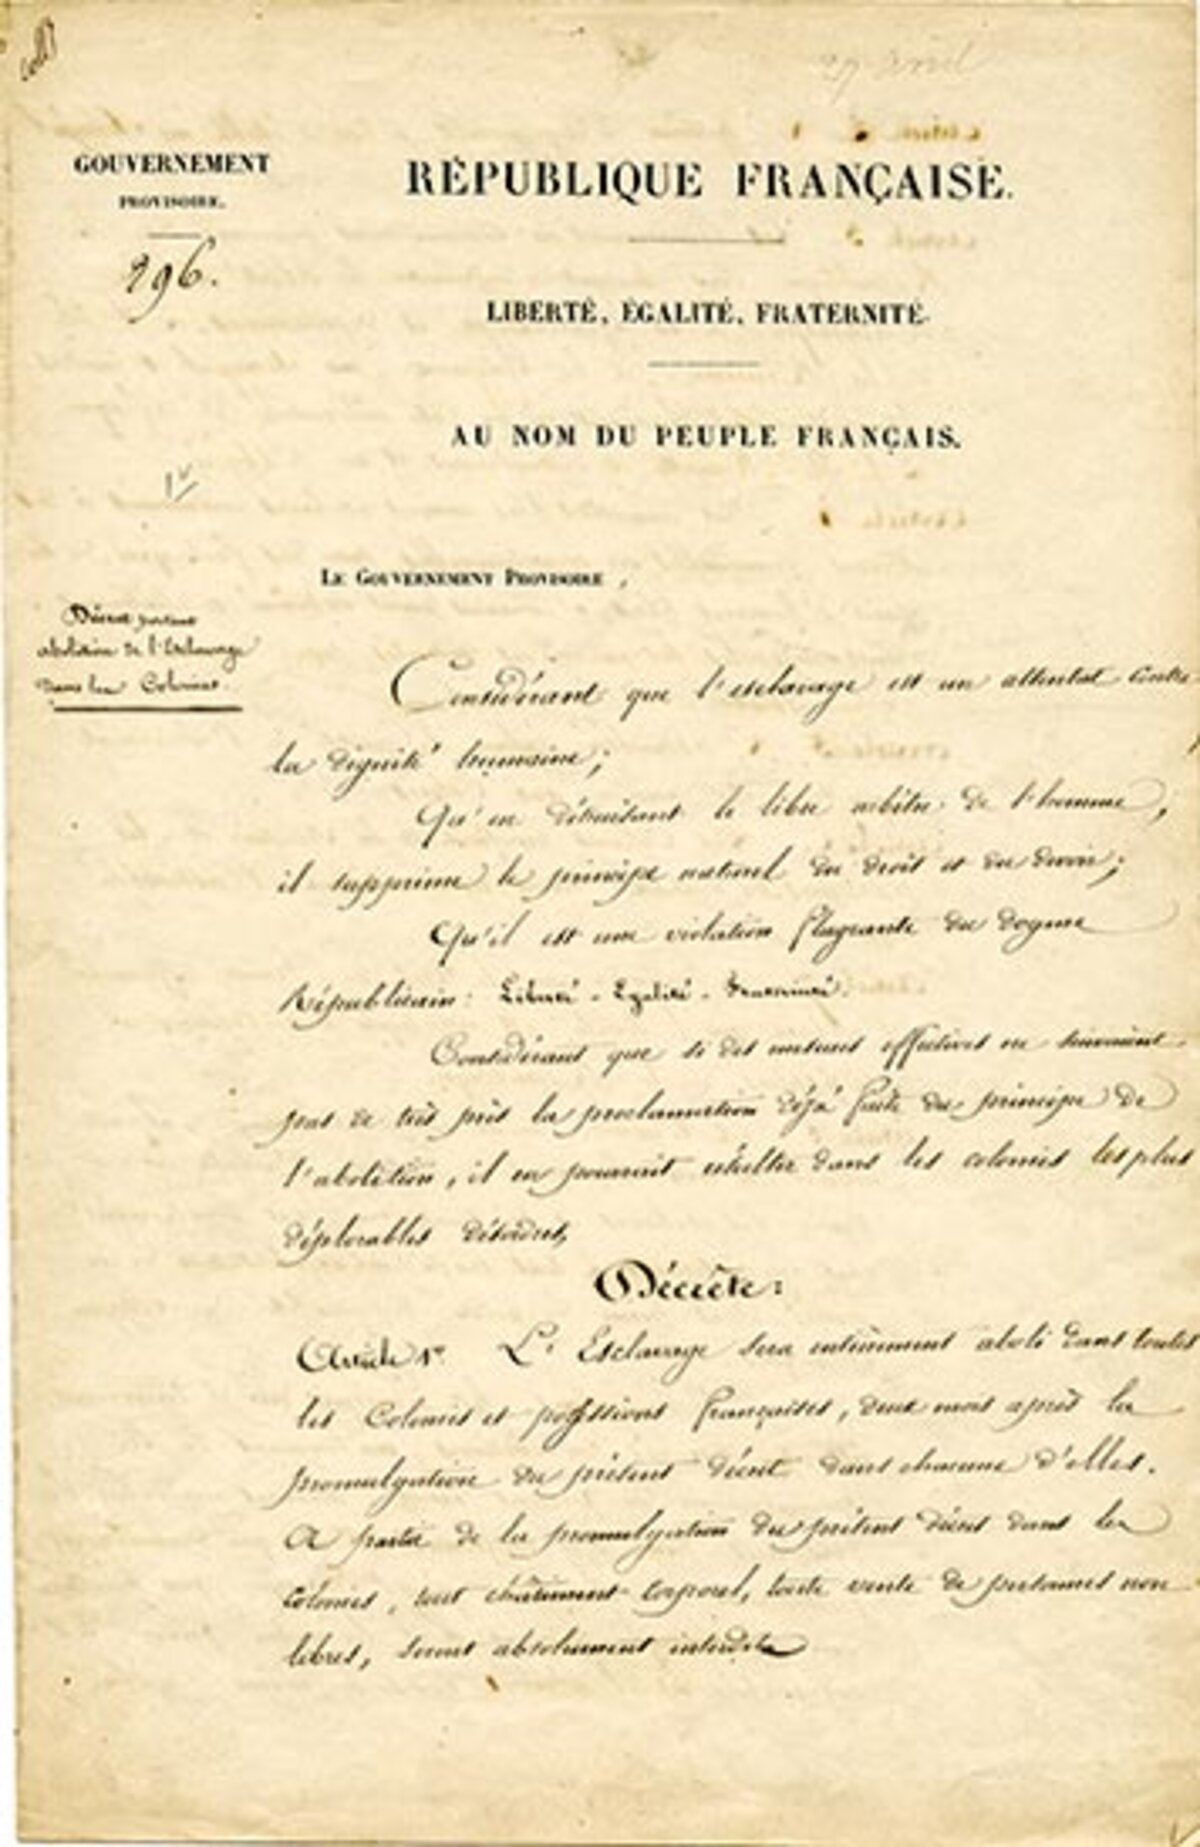 27 avril
GOUVERNEMENT
PROVISOIRE.
296.
RÉPUBLIQUE FRANÇAISE.
LIBERTÉ, ÉGALITÉ, FRATERNITÉ.
AU NOM DU PEUPLE FRANÇAIS.
LE GOUVERNEMENT PROVISOIRE,
Décret portant
abolition de l'Esclavage
dans les Colonies.
Considérant que l'esclavage est un attentat contre
la dignité humaine;
Qu'en détruisant le libre arbitre de l'homme,
il supprime le principe naturel du droit et du devoir;
Qu'il est une violation flagrante du dogme
Républicain: Liberté - Egalité - Fraternité.
Considérant que si des mesures effectives ne suivaient
pas de très près la proclamation déjà faite du principe de
l'abolition, il en pourrait résulter dans les colonies les plus
déplorables désordres,
Décrète:
Article 1er. L'Esclavage sera entièrement aboli dans toutes
les Colonies et possessions françaises, deux mois après la
promulgation du présent décret dans chacune d'elles.
A partir de la promulgation du présent décret dans les
colonies, tout châtiment corporel, toute vente de personnes non
libres, seront absolument interdits